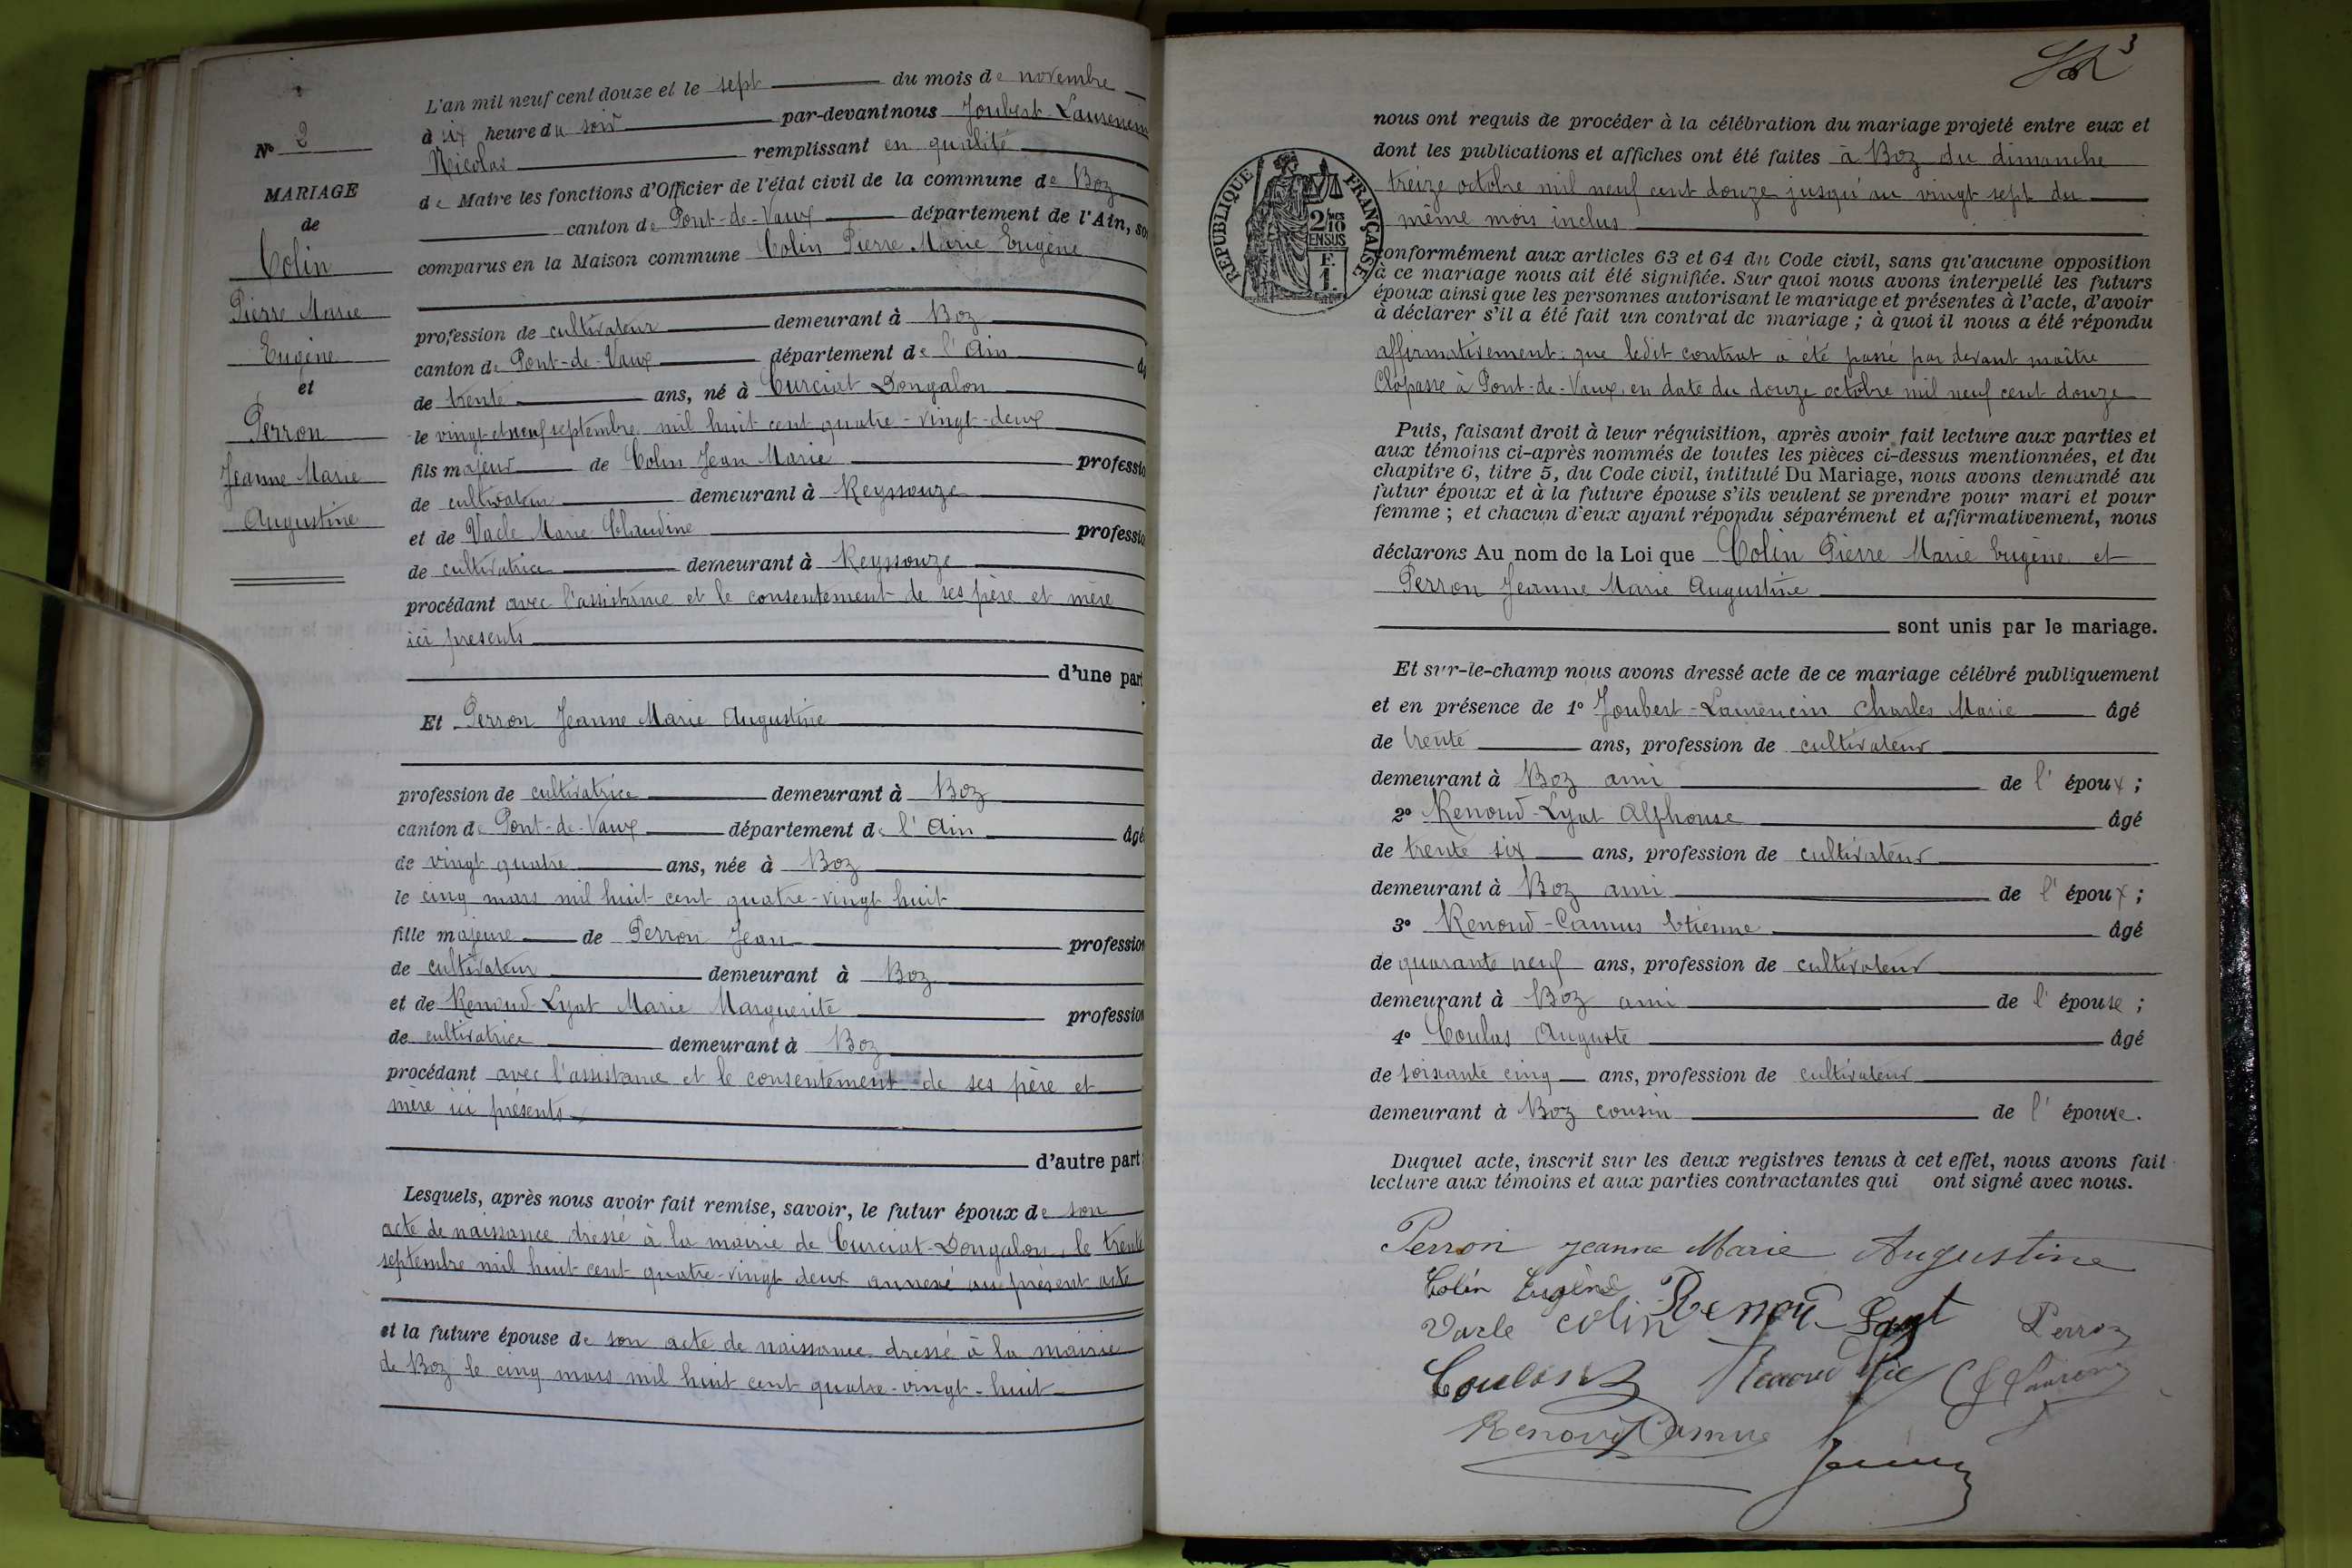 N° 2
MARIAGE
de
Colin
Pierre Marie
Eugène
et
Perron
Jeanne Marie
Augustine
L'an mil neuf cent douze et le sept du mois de novembre
à six heure du soir par-devant nous Joubert-Laurencin
Nicolas remplissant en qualité
de Maire les fonctions d'Officier de l'état civil de la commune de Boz
canton de Pont-de-Vaux département de l'Ain, so
comparus en la Maison commune Colin Pierre Marie Eugène
profession de cultivateur demeurant à Boz
canton de Pont-de-Vaux département de l'Ain
de trente ans, né à Curciat Dongalon
le vingt et neuf septembre mil huit cent quatre-vingt-deux
fils majeur de Colin Jean Marie professio
de cultivateur demeurant à Reyssouze
et de Vacle Marie Claudine professio
de cultivatrice demeurant à Reyssouze
procédant avec l'assistance et le consentement de ses père et mère
ici presents
d'une part
Et Perron Jeanne Marie Augustine
profession de cultivatrice demeurant à Boz
canton de Pont-de-Vaux département de l'Ain âgé
de vingt quatre ans, née à Boz
le cinq mars mil huit cent quatre-vingt huit
fille majeure de Perron Jean profession
de cultivateur demeurant à Boz
et de Renoud-Lyat Marie Marguerite profession
de cultivatrice demeurant à Boz
procédant avec l'assistance et le consentement de ses père et
mère ici présents
d'autre part
Lesquels, après nous avoir fait remise, savoir, le futur époux de son
acte de naissance dressé à la mairie de Curciat-Dongalon, le trente
septembre mil huit cent quatre-vingt deux annexé au présent acte
et la future épouse de son acte de naissance dressé à la mairie
de Boz le cinq mars mil huit cent quatre-vingt-huit
3
nous ont requis de procéder à la célébration du mariage projeté entre eux et
dont les publications et affiches ont été faites à Boz du dimanche
treize octobre mil neuf cent douze jusqu'au vingt sept du
même mois inclus
RÉPUBLIQUE FRANÇAISE
2/10 MES
EN SUS
F.
1.
conformément aux articles 63 et 64 du Code civil, sans qu'aucune opposition
à ce mariage nous ait été signifiée. Sur quoi nous avons interpellé les futurs
époux ainsi que les personnes autorisant le mariage et présentes à l'acte, d'avoir
à déclarer s'il a été fait un contrat de mariage ; à quoi il nous a été répondu
affirmativement que ledit contrat a été passé par devant maître
Clopasse à Pont-de-Vaux, en date du douze octobre mil neuf cent douze
Puis, faisant droit à leur réquisition, après avoir fait lecture aux parties et
aux témoins ci-après nommés de toutes les pièces ci-dessus mentionnées, et du
chapitre 6, titre 5, du Code civil, intitulé Du Mariage, nous avons demandé au
futur époux et à la future épouse s'ils veulent se prendre pour mari et pour
femme ; et chacun d'eux ayant répondu séparément et affirmativement, nous
déclarons Au nom de la Loi que Colin Pierre Marie Eugène et
Perron Jeanne Marie Augustine
sont unis par le mariage.
Et sur-le-champ nous avons dressé acte de ce mariage célébré publiquement
et en présence de 1° Joubert-Laurencin Charles Marie âgé
de trente ans, profession de cultivateur
demeurant à Boz ami de l'époux ;
2° Renoud-Lyat Alphonse âgé
de trente six ans, profession de cultivateur
demeurant à Boz ami de l'époux ;
3° Renoud-Camus Etienne âgé
de quarante neuf ans, profession de cultivateur
demeurant à Boz ami de l'épouse ;
4° Coulas Auguste âgé
de soixante cinq ans, profession de cultivateur
demeurant à Boz cousin de l'épouse.
Duquel acte, inscrit sur les deux registres tenus à cet effet, nous avons fait
lecture aux témoins et aux parties contractantes qui ont signé avec nous.
Perron Jeanne Marie Augustine
Colin Eugène
Vacle Colin Renou Perron
Coulas Renoud
Renoud Camus